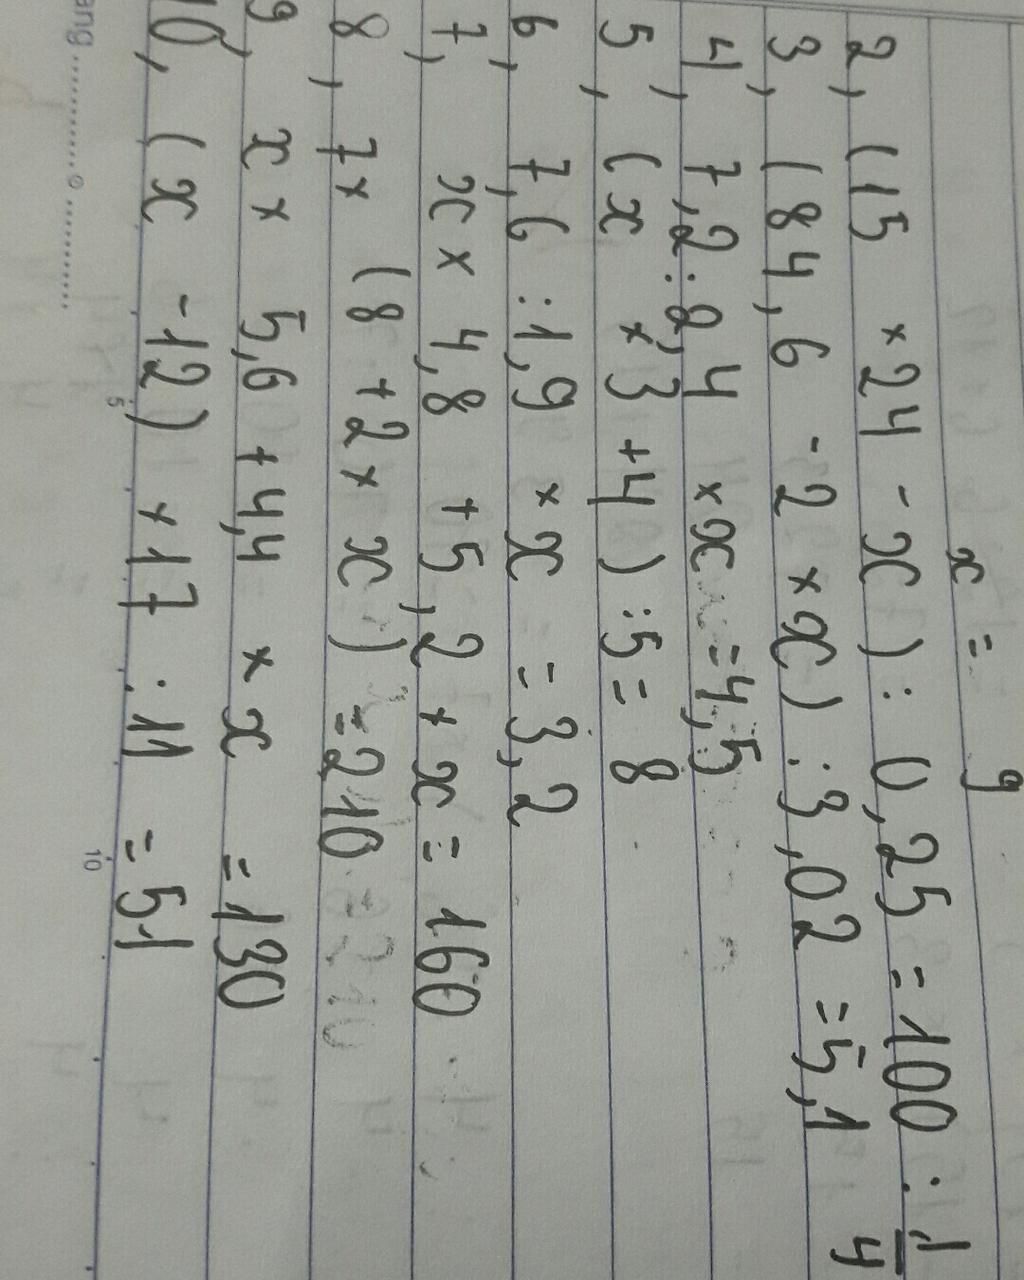 x = 9
2, (15 × 24 - x) : 0,25 = 100 : 1/4
3, (84,6 - 2 × x) : 3,02 = 5,1
4, 7,2 : 2,4 × x = 4,5
5, (x × 3 + 4) : 5 = 8
6, 7,6 : 1,9 × x = 3,2
7, x × 4,8 + 5,2 × x = 160
8, 7 × (8 + 2 × x) = 210
9, x × 5,6 + 4,4 × x = 130
10, (x - 12) × 17 : 11 = 51
ang
5
10